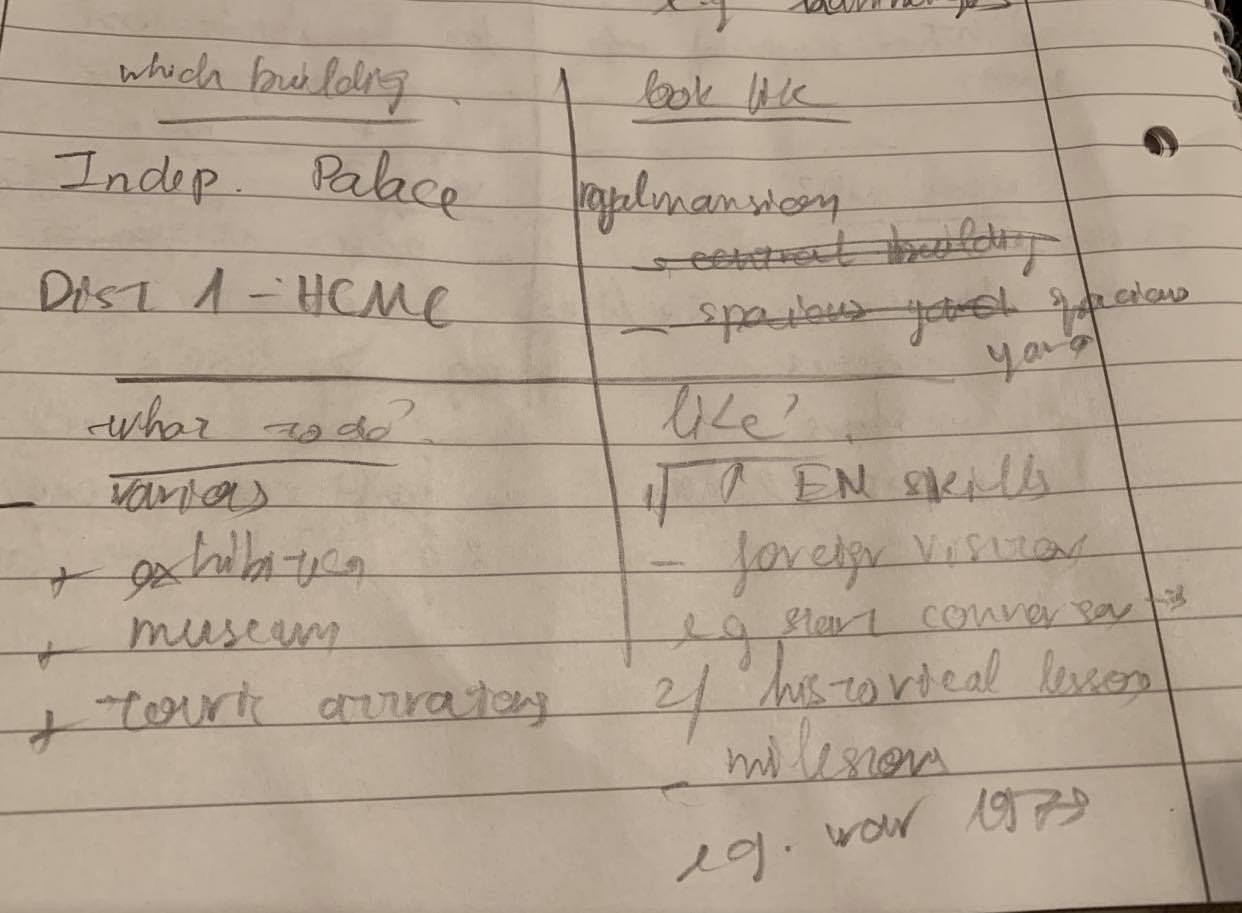 e.g
which building
Indep. Palace
Dist 1 - HCMC
look like
royal mansion
central building
- spacious yard spacious
yard
what to do?
- various
+ exhibition
+ museum
+ tourist
like?
1/ ↑ EN skills
- foreign visitors
eg start conversat
2/ historical lesson
- milestones
eg. war